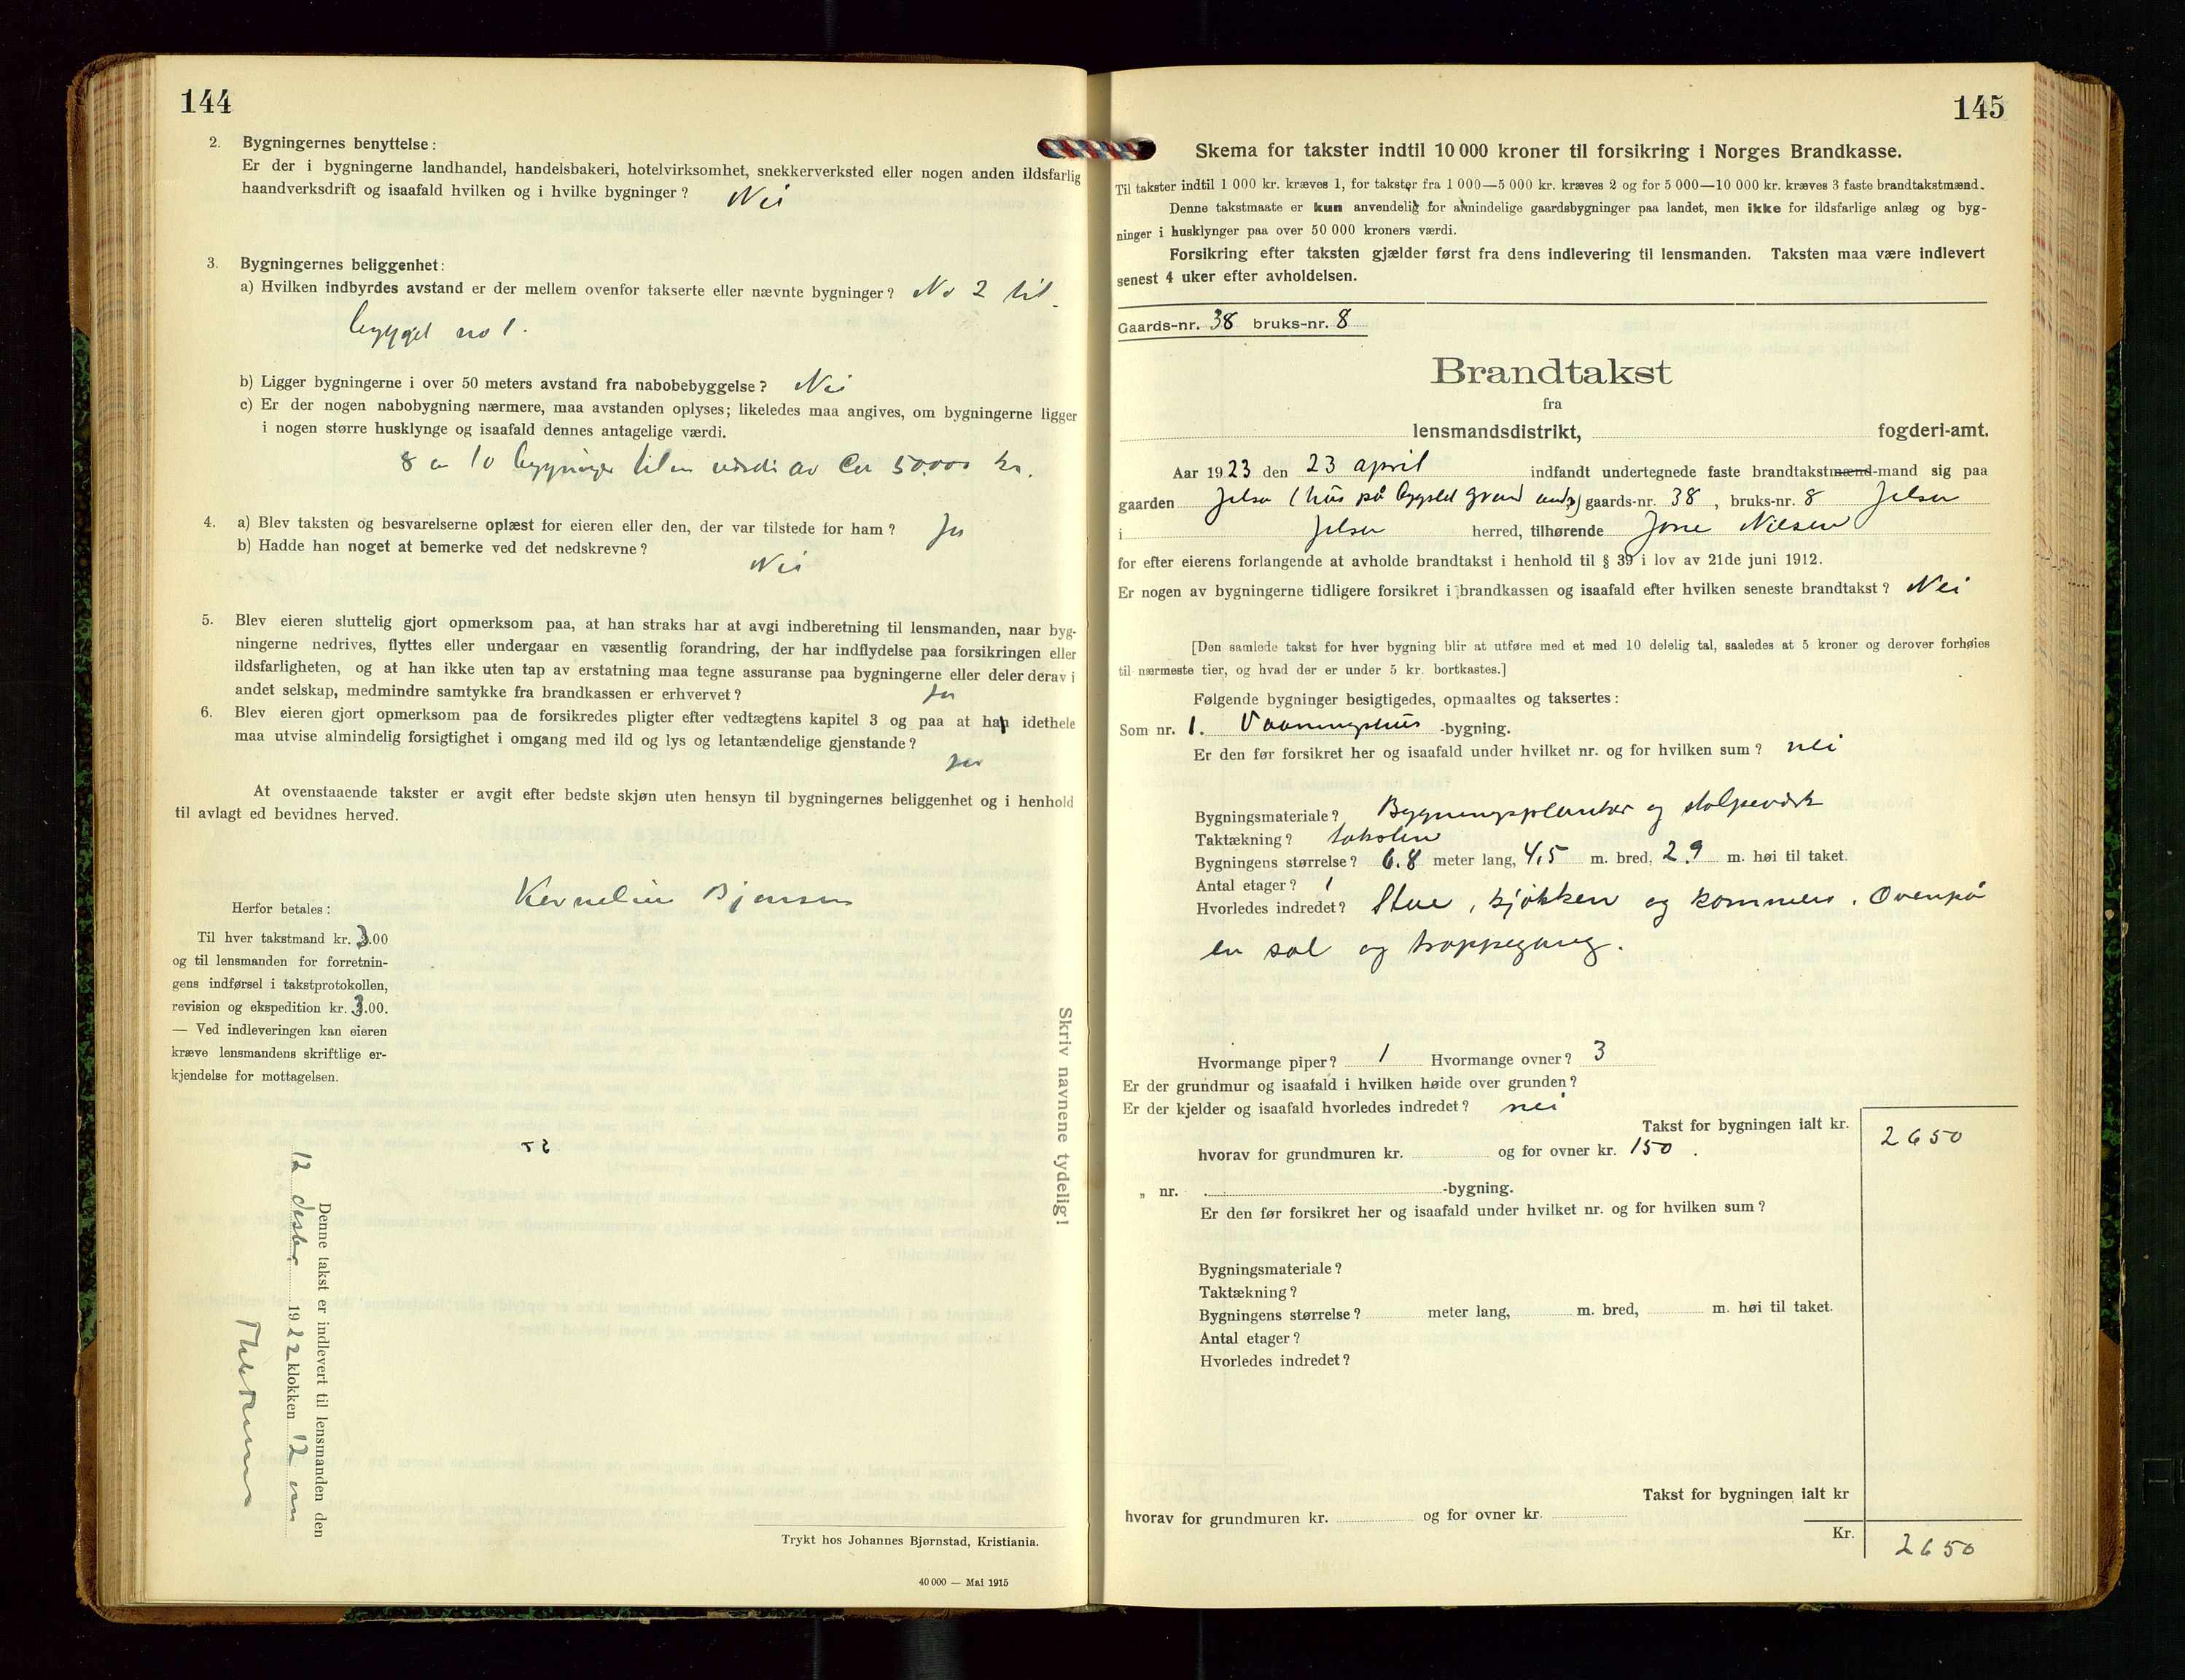 144
2. Bygningernes benyttelse:
Er der i bygningerne landhandel, handelsbakeri, hotelvirksomhet, snekkerverksted eller nogen anden ildsfarlig
haandverksdrift og isaafald hvilken og i hvilke bygninger? Nei
3. Bygningernes beliggenhet:
a) Hvilken indbyrdes avstand er der mellem ovenfor takserte eller nævnte bygninger? No 2 til-
bygget no 1.
b) Ligger bygningerne i over 50 meters avstand fra nabobebyggelse? Nei
c) Er der nogen nabobygning nærmere, maa avstanden oplyses; likeledes maa angives, om bygningerne ligger
i nogen større husklynge og isaafald dennes antagelige værdi.
8 a 10 bygninger til en værdi av Ca 50,000 kr.
4. a) Blev taksten og besvarelserne oplæst for eieren eller den, der var tilstede for ham? Ja
b) Hadde han noget at bemerke ved det nedskrevne?
Nei
5. Blev eieren sluttelig gjort opmerksom paa, at han straks har at avgi indberetning til lensmanden, naar byg-
ningerne nedrives, flyttes eller undergaar en væsentlig forandring, der har indflydelse paa forsikringen eller
ildsfarligheten, og at han ikke uten tap av erstatning maa tegne assuranse paa bygningerne eller deler derav i
andet selskap, medmindre samtykke fra brandkassen er erhvervet? ja
6. Blev eieren gjort opmerksom paa de forsikredes pligter efter vedtægtens kapitel 3 og paa at han idethele
maa utvise almindelig forsigtighet i omgang med ild og lys og letantændelige gjenstande?
ja
At ovenstaaende takster er avgit efter bedste skjøn uten hensyn til bygningernes beliggenhet og i henhold
til avlagt ed bevidnes herved.
Kornelius Bjensen
Herfor betales:
Til hver takstmand kr. 3.00
og til lensmanden for forretnin-
gens indførsel i takstprotokollen,
revision og ekspedition kr. 3.00.
— Ved indleveringen kan eieren
kræve lensmandens skriftlige er-
kjendelse for mottagelsen.
Skriv navnene tydelig!
Denne takst er indlevert til lensmanden den
12 desbr 1922 klokken 12
Trykt hos Johannes Bjørnstad, Kristiania.
40 000 — Mai 1915
145
Skema for takster indtil 10 000 kroner til forsikring i Norges Brandkasse.
Til takster indtil 1 000 kr. kræves 1, for takster fra 1 000—5 000 kr. kræves 2 og for 5 000—10 000 kr. kræves 3 faste brandtakstmænd.
Denne takstmaate er kun anvendelig for almindelige gaardsbygninger paa landet, men ikke for ildsfarlige anlæg og byg-
ninger i husklynger paa over 50 000 kroners værdi.
Forsikring efter taksten gjælder først fra dens indlevering til lensmanden. Taksten maa være indlevert
senest 4 uker efter avholdelsen.
Gaards-nr. 38 bruks-nr. 8
Brandtakst
fra
lensmandsdistrikt, fogderi-amt.
Aar 1923 den 23 april indfandt undertegnede faste brandtakstmænd-mand sig paa
gaarden Jelsa (hus på bygslet grund under) gaards-nr. 38, bruks-nr. 8 Jelsa
i Jelsa herred, tilhørende Jone Nilsen
for efter eierens forlangende at avholde brandtakst i henhold til § 39 i lov av 21de juni 1912.
Er nogen av bygningerne tidligere forsikret i brandkassen og isaafald efter hvilken seneste brandtakst? Nei
[Den samlede takst for hver bygning blir at utføre med et med 10 delelig tal, saaledes at 5 kroner og derover forhøies
til nærmeste tier, og hvad der er under 5 kr. bortkastes.]
Følgende bygninger besigtigedes, opmaaltes og taksertes:
Som nr. 1. Vaaningshus -bygning.
Er den før forsikret her og isaafald under hvilket nr. og for hvilken sum? nei
Bygningsmateriale? Bygningsplanker og stolpeværk
Taktækning? taksten
Bygningens størrelse? 6.8 meter lang, 4,5 m. bred, 2.9 m. høi til taket.
Antal etager? 1
Hvorledes indredet? Stue, kjøkken og kammers. Ovenpå
en sal og trappegang.
Hvormange piper? 1 Hvormange ovner? 3
Er der grundmur og isaafald i hvilken høide over grunden?
Er der kjelder og isaafald hvorledes indredet? nei
Takst for bygningen ialt kr. 2650
hvorav for grundmuren kr. og for ovner kr. 150.
„ nr. -bygning.
Er den før forsikret her og isaafald under hvilket nr. og for hvilken sum?
Bygningsmateriale?
Taktækning?
Bygningens størrelse? meter lang, m. bred, m. høi til taket.
Antal etager?
Hvorledes indredet?
Takst for bygningen ialt kr
hvorav for grundmuren kr. og for ovner kr.
Kr. 2650